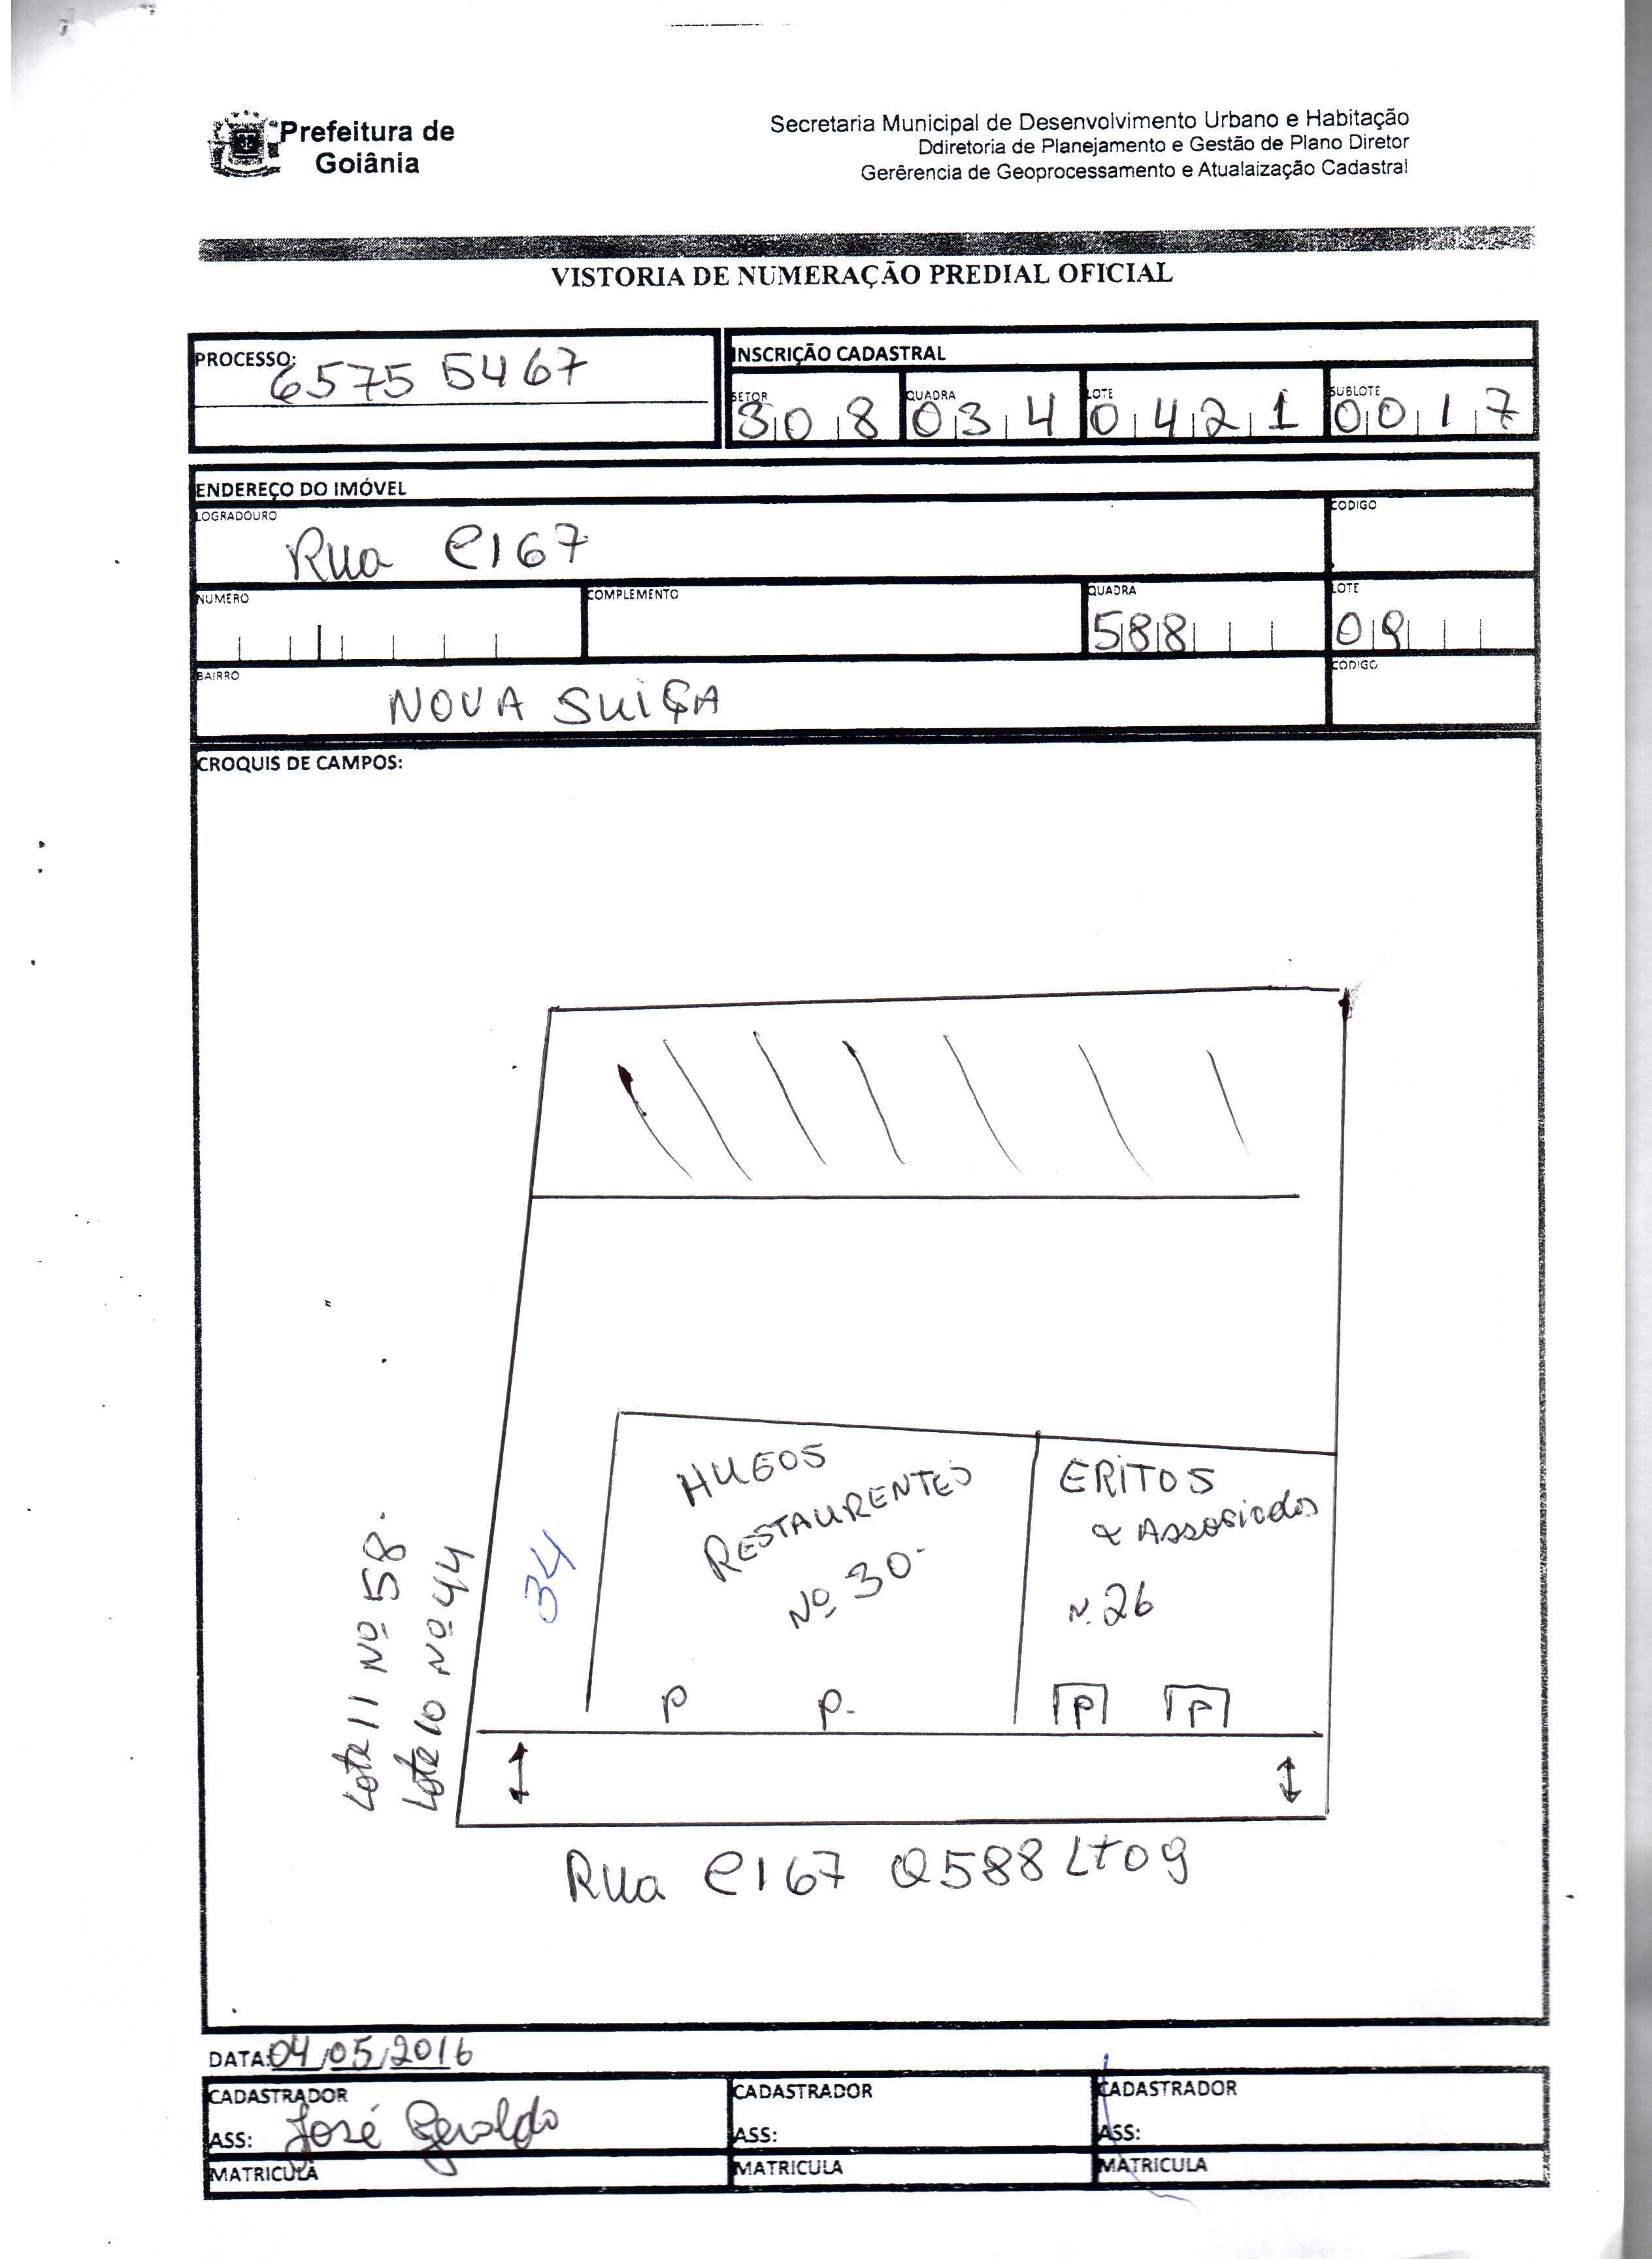 Prefeitura de
Goiânia
Secretaria Municipal de Desenvolvimento Urbano e Habitação
Ddiretoria de Planejamento e Gestão de Plano Diretor
Gerêrencia de Geoprocessamento e Atualaização Cadastral
VISTORIA DE NUMERAÇÃO PREDIAL OFICIAL
PROCESSO:
6575 5467
INSCRIÇÃO CADASTRAL
SETOR
308
QUADRA
034
LOTE
0421
SUBLOTE
0017
ENDEREÇO DO IMÓVEL
LOGRADOURO
Rua C167
CODIGO
NUMERO
COMPLEMENTO
QUADRA
588
LOTE
09
BAIRRO
NOVA SUIÇA
CODIGO
CROQUIS DE CAMPOS:
HUGOS
RESTAURENTES
Nº 30
ERITOS
& Assosiados
N. 26
34
Lote 11 Nº 58
Lote 10 Nº 44
P
P
P
P
Rua C167 Q588 Lt09
DATA: 04/05/2016
CADASTRADOR
ASS: José Geraldo
MATRICULA
CADASTRADOR
ASS:
MATRICULA
CADASTRADOR
ASS:
MATRICULA